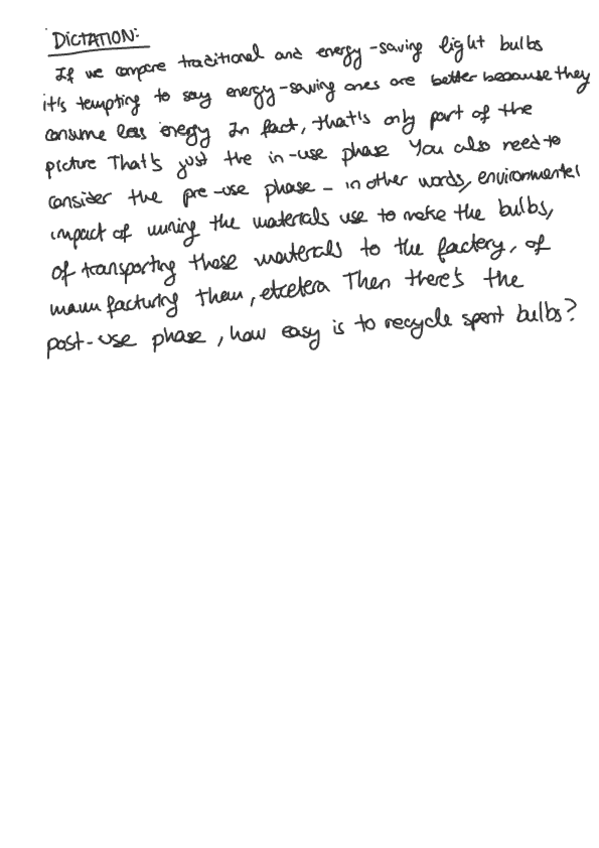 DICTATION:
If we compare traditional and energy-saving light bulbs
it's tempting to say energy-saving ones are better because they
consume less energy In fact, that's only part of the
picture That's just the in-use phase You also need to
consider the pre-use phase - in other words, environmental
impact of mining the materials use to make the bulbs,
of transporting these materials to the factory, of
manufacturing them, etcetera Then there's the
post-use phase, how easy is to recycle spent bulbs?